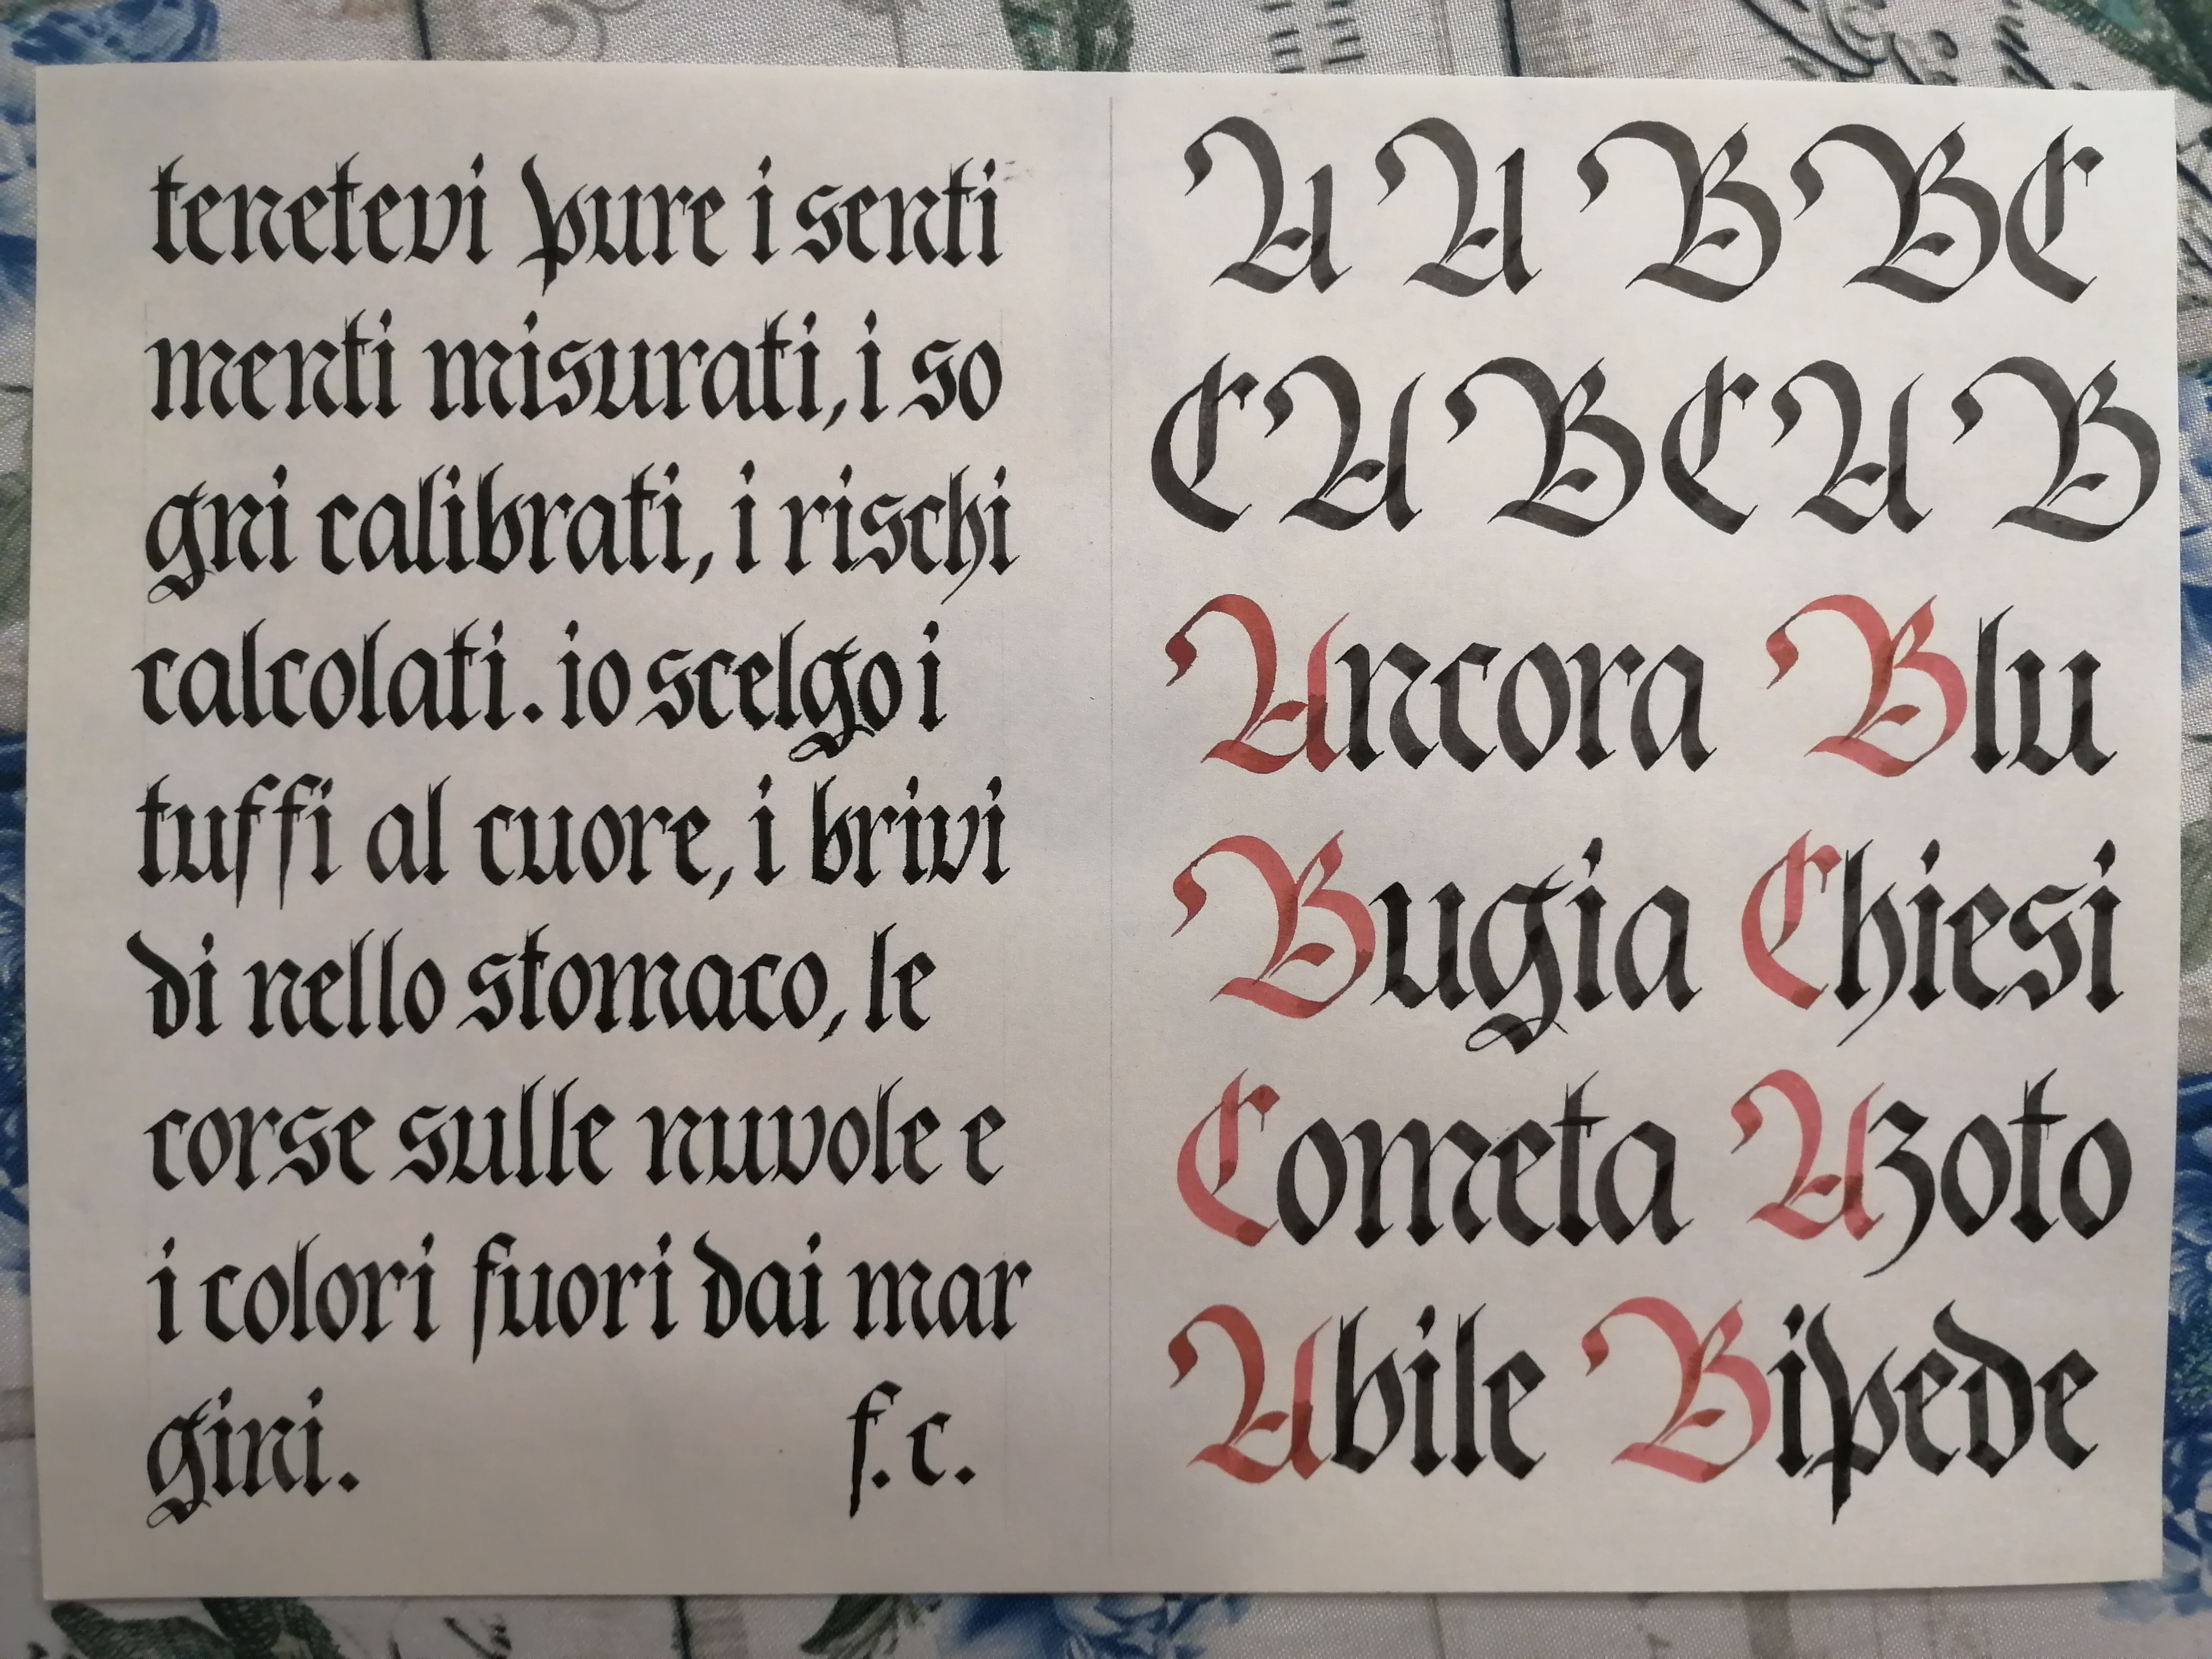 tenetevi pure i senti
menti misurati, i so
gni calibrati, i rischi
calcolati. io scelgo i
tuffi al cuore, i brivi
di nello stomaco, le
corse sulle nuvole e
i colori fuori dai mar
gini. f.c.
A A B B C
C A B C A B
Ancora Blu
Bugia Chiesi
Cometa Azoto
Abile Bipede